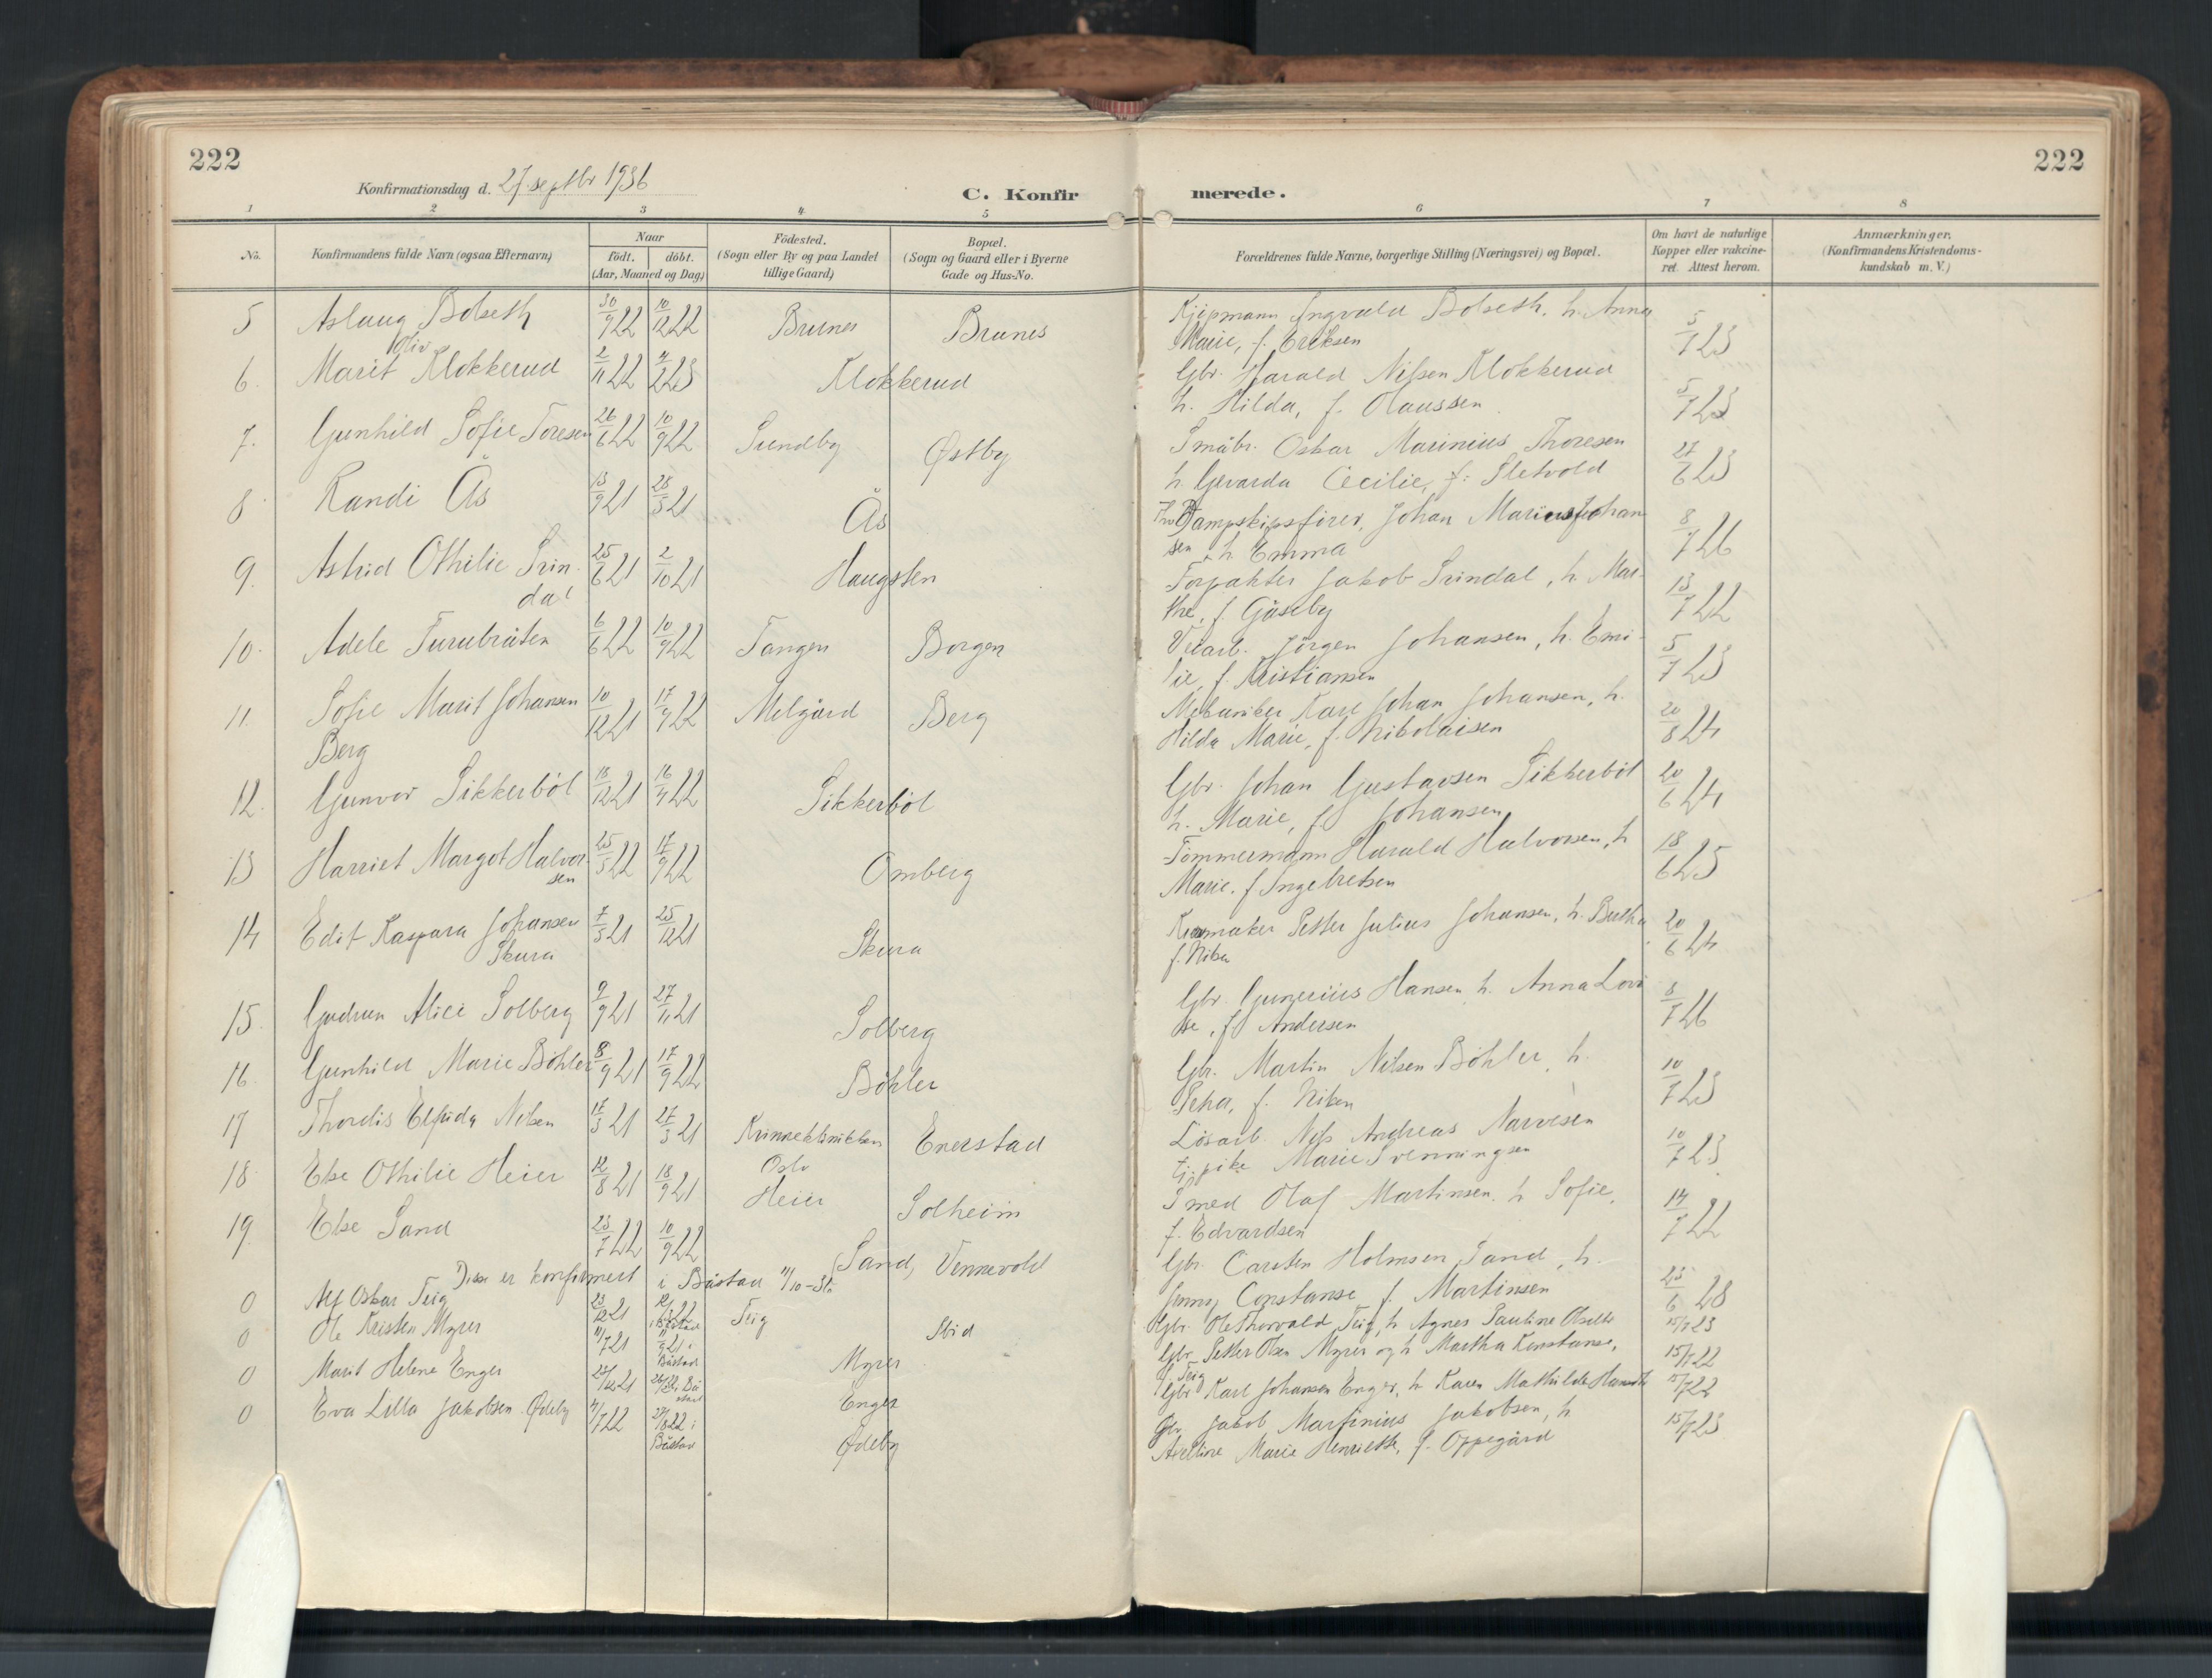 222
222
Konfirmationsdag d. 27. septbr 1936
C. Konfirmerede.
1 2 3 4 5 6 7 8
No.
Konfirmandens fulde Navn (ogsaa Efternavn)
Naar
födt. döbt.
(Aar, Maaned og Dag)
Födested.
(Sogn eller By og paa Landet
tillige Gaard)
Bopæl.
(Sogn og Gaard eller i Byerne
Gade og Hus-No.
Forældrenes fulde Navne, borgerlige Stilling (Næringsvei) og Bopæl.
Om havt de naturlige
Kopper eller vakcine-
ret. Attest herom.
Anmærkninger.
(Konfirmandens Kristendoms-
kundskab m. V.)
5 Aslaug Bolseth 30/9 22 10/12 22 Brunes Brunes Kjöpmann Ingvald Bolseth, h. Anna
Marie, f. Eriksen 5/7 23
6. Marit Oliv Klokkerud 2/11 22 4/2 23 Klokkerud Gbr. Harald Nilsen Klokkerud
h. Hilda, f. Olaussen 5/7 23
7. Gunhild Sofie Toresen 26/6 22 10/9 22 Sundby Østby Småbr. Oskar Marinius Thoresen
h. Gevarda Cecilie, f. Sletvold 27/6 23
8 Randi Ås 13/9 21 28/5 21 Ås Dampskipsfører, Johan Marius Johan
sen, h. Emma 8/7 26
9. Astrid Othilie Srin-
dal 25/6 21 2/10 21 Haugsten Forpakter Jakob Srindal, h. Mar-
the, f. Gåseby 13/7 22
10. Adele Furubråten 6/6 22 10/9 22 Tangen Borgen Veiarb. Jörgen Johansen, h. Emi-
lie, f. Kristiansen 5/7 23
11. Sofie Marit Johansen
Berg 10/12 21 17/9 22 Melgård Berg Mekaniker Karl Johan Johansen, h.
Hilda Marie, f. Nikolaisen 20/8 24
12. Gunvor Sikkerböl 18/12 21 16/4 22 Sikkerböl Gbr. Johan Gustavsen Sikkerböl
h. Marie, f. Johansen 20/6 24
13 Harriet Margot Halvor-
sen 25/5 22 17/9 22 Omberg Tömmermann Harald Halvorsen, h
Marie, f. Ingebretsen 18/6 25
14 Edit Kaspara Johansen
Skura 7/5 21 25/12 21 Skura Petter Julius Johansen, h. Bertha
20/6 24
15. Gudrun Alice Solberg 9/9 21 27/11 21 Solberg Gbr. Gunerius Hansen, h. Anna Lovi
se, f. Andersen 8/7 26
16. Gunhild Marie Böhler 8/9 21 17/9 22 Böhler Gbr. Martin Nilsen Böhler, h.
10/7 23
17 Thordis Elfrida Nilsen 17/3 21 27/3 21 Kvinneklinikken
Oslo Enerstad Lösarb. Nils Andreas Narvesen
tj.pike Marie Svenningsen 10/7 23
18. Else Othilie Heier 12/8 21 18/9 21 Heier Solheim Smed Olaf Martinsen, h. Sofie,
f. Edvardsen 14/7 22
19. Else Sand 23/7 22 10/9 22 Sand, Vennevold Gbr. Carsten Holmsen Sand, h.
Jenny Constanse f. Martinsen 23/6 28
Disse er konfirmert i Båstad 11/10-36
0 Alf Oskar Teig 23/12 21 i Båstad Teig Gbr. Ole Thorvald Teig, h. Agnes Pauline 15/7 23
0 Ole Kristen Myrer 11/7 21 11/9 21 i
Båstad Myrer Gbr. Petter Olsen Myrer og h. Martha Konstanse,
f. Teig 15/7 22
0 Marit Helene Enger 25/12 21 Båstad Enger Gbr. Karl Johansen Enger, h. Karen Mathilde
0 Eva Lilla Jakobsen Ødeby 4/7 22 27/8 22 i
Båstad Ødeby Gbr. Jakob Martinius Jakobsen, h
Aveline Marie Henriette, f. Oppegård 15/7 23